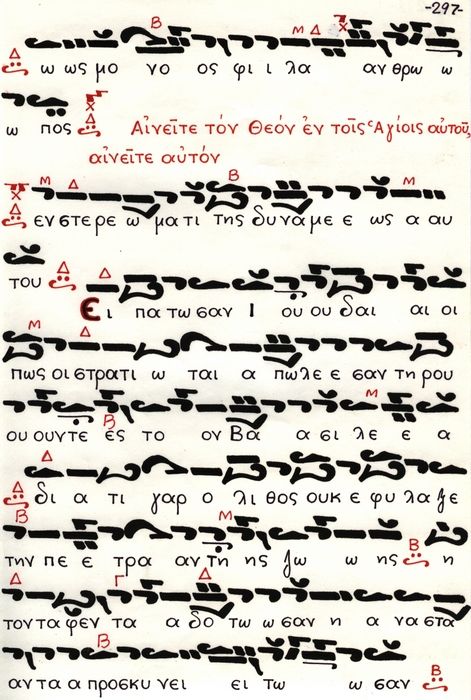 -297-
ω ως μο νο ος φι ι λα αν θρω ω
ω πος Αἰνεῖτε τόν Θεόν ἐν τοῖς Ἁγίοις αὐτοῦ,
αἰνεῖτε αὐτόν
εν στε ρε ω μα τι της δυ να με ε ως α αυ
του Ει πα τω σαν Ι ου ου δαι αι οι
πως οι στρα τι ω ται α πω λε ε σαν τη ρου
ου ουν τε ες το ον Βα α σι λε ε α
δι α τι γαρ ο λι θος ουκ ε φυ λα ξε
την πε ε τρα αν τη ης ζω ω ης η
τον τα φεν τα α δο τω ω σαν η α να στα
αν τα α προ σκυ νει ει τω ω σαν